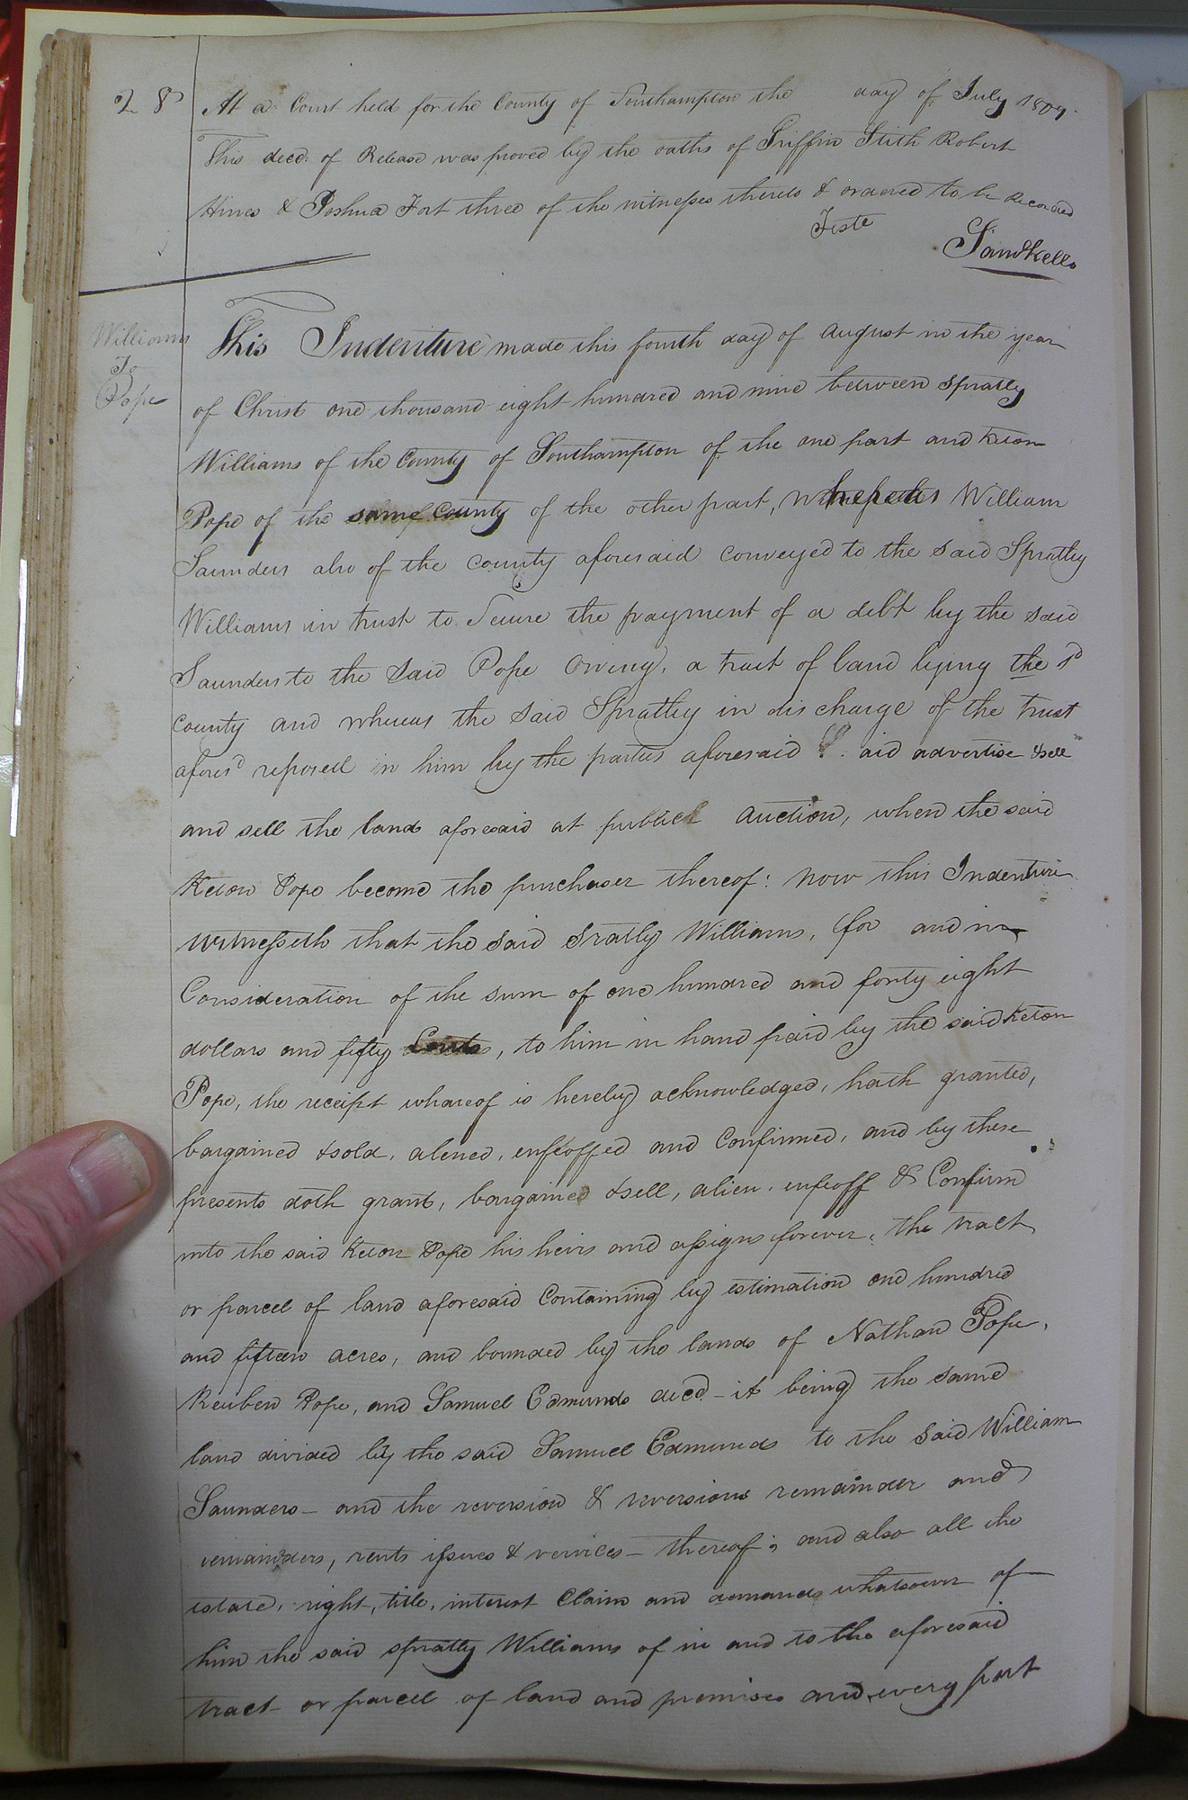 28
At a Court held for the County of Southampton the day of July 1809.
This deed of Release was proved by the oaths of Griffin Stith Robert
Hines & Joshua Fort three of the witnesses thereto & ordered to be Recorded
Teste
Saml Kello
Williams
To
Pope
This Indenture made this fourth day of August in the year
of Christ one thousand eight hundred and nine between Spratly
Williams of the County of Southampton of the one part and Keton
Pope of the same County of the other part, Whereas William
Saunders also of the county aforesaid conveyed to the said Spratley
Williams in trust to Secure the payment of a debt by the said
Saunders to the said Pope owing, a tract of land lying the sd
County and whereas the said Spratley in discharge of the trust
aforesd reposed in him by the parties aforesaid did advertise & sell
and sell the land aforesaid at publick auction, when the said
Keton Pope become the purchaser thereof: now this Indenture
witnesseth that the said Sratly Williams, for and in
Consideration of the sum of one hundred and forty eight
dollars and fifty Cents, to him in hand paid by the said Keton
Pope, the receipt whareof is hereby acknowledged, hath granted,
bargained & sold, aliened, enfeoffed and Confirmed, and by these
presents doth grant, bargained & sell, alien, enfeoff & Confirm
unto the said Keton Pope his heirs and assigns forever, the tract
or parcel of land aforesaid Containing by estimation one hundred
and fifteen acres, and bounded by the lands of Nathan Pope,
Reuben Pope, and Samuel Edmunds decd - it being the same
land divided by the said Samuel Edmunds to the said William
Saunders - and the reversion & reversions remainder and
remainders, rents issues & services - thereof; and also all the
estate, right, title, interest Claim and demands whatsoever of
him the said Spratly Williams of in and to the aforesaid
tract or parcel of land and premises and every part